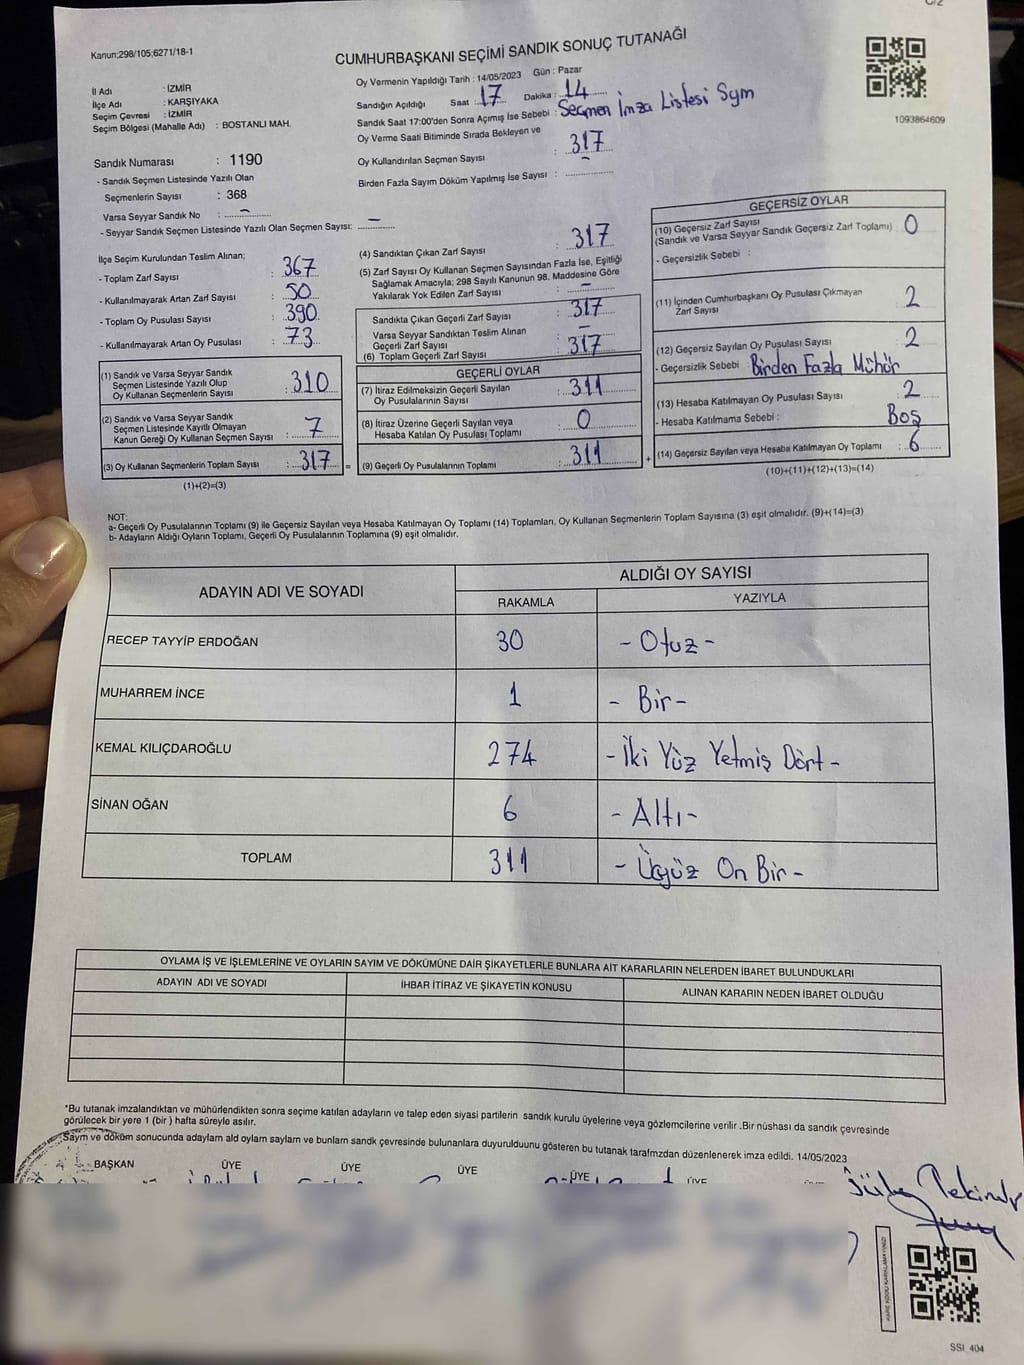 C/2
Kanun;298/105;6271/18-1
CUMHURBAŞKANI SEÇİMİ SANDIK SONUÇ TUTANAĞI
İl Adı : İZMİR
İlçe Adı : KARŞIYAKA
Seçim Çevresi : İZMİR
Seçim Bölgesi (Mahalle Adı) : BOSTANLI MAH.
Oy Vermenin Yapıldığı Tarih : 14/05/2023 Gün : Pazar
Sandığın Açıldığı Saat : 17 Dakika : 14
Sandık Saat 17:00'den Sonra Açımış İse Sebebi : Seçmen İmza Listesi Sym
Oy Verme Saati Bitiminde Sırada Bekleyen ve
Oy Kullandırılan Seçmen Sayısı : 317
Birden Fazla Sayım Döküm Yapılmış İse Sayısı : -
1093864609
Sandık Numarası : 1190
- Sandık Seçmen Listesinde Yazılı Olan
Seçmenlerin Sayısı : 368
Varsa Seyyar Sandık No : -
- Seyyar Sandık Seçmen Listesinde Yazılı Olan Seçmen Sayısı: -
İlçe Seçim Kurulundan Teslim Alınan;
- Toplam Zarf Sayısı : 367
- Kullanılmayarak Artan Zarf Sayısı : 50
- Toplam Oy Pusulası Sayısı : 390
- Kullanılmayarak Artan Oy Pusulası : 73
(1) Sandık ve Varsa Seyyar Sandık
Seçmen Listesinde Yazılı Olup
Oy Kullanan Seçmenlerin Sayısı : 310
(2) Sandık ve Varsa Seyyar Sandık
Seçmen Listesinde Kayıtlı Olmayan
Kanun Gereği Oy Kullanan Seçmen Sayısı : 7
(3) Oy Kullanan Seçmenlerin Toplam Sayısı : 317 =
(1)+(2)=(3)
(4) Sandıktan Çıkan Zarf Sayısı : 317
(5) Zarf Sayısı Oy Kullanan Seçmen Sayısından Fazla İse, Eşitliği
Sağlamak Amacıyla; 298 Sayılı Kanunun 98. Maddesine Göre
Yakılarak Yok Edilen Zarf Sayısı : -
Sandıkta Çıkan Geçerli Zarf Sayısı : 317
Varsa Seyyar Sandıktan Teslim Alınan
Geçerli Zarf Sayısı : -
(6) Toplam Geçerli Zarf Sayısı : 317
GEÇERLİ OYLAR
(7) İtiraz Edilmeksizin Geçerli Sayılan
Oy Pusulalarının Sayısı : 311
(8) İtiraz Üzerine Geçerli Sayılan veya
Hesaba Katılan Oy Pusulası Toplamı : 0
(9) Geçerli Oy Pusulalarının Toplamı : 311 +
GEÇERSİZ OYLAR
(10) Geçersiz Zarf Sayısı
(Sandık ve Varsa Seyyar Sandık Geçersiz Zarf Toplamı) : 0
- Geçersizlik Sebebi :
(11) İçinden Cumhurbaşkanı Oy Pusulası Çıkmayan
Zarf Sayısı : 2
(12) Geçersiz Sayılan Oy Pusulası Sayısı : 2
- Geçersizlik Sebebi Birden Fazla Mühür
(13) Hesaba Katılmayan Oy Pusulası Sayısı : 2
- Hesaba Katılmama Sebebi : Boş
(14) Geçersiz Sayılan veya Hesaba Katılmayan Oy Toplamı : 6
(10)+(11)+(12)+(13)=(14)
NOT:
a- Geçerli Oy Pusulalarının Toplamı (9) ile Geçersiz Sayılan veya Hesaba Katılmayan Oy Toplamı (14) Toplamları, Oy Kullanan Seçmenlerin Toplam Sayısına (3) eşit olmalıdır. (9)+(14)=(3)
b- Adayların Aldığı Oyların Toplamı, Geçerli Oy Pusulalarının Toplamına (9) eşit olmalıdır.
ADAYIN ADI VE SOYADI
ALDIĞI OY SAYISI
RAKAMLA YAZIYLA
RECEP TAYYİP ERDOĞAN 30 - Otuz -
MUHARREM İNCE 1 - Bir -
KEMAL KILIÇDAROĞLU 274 - İki Yüz Yetmiş Dört -
SİNAN OĞAN 6 - Altı -
TOPLAM 311 - Üçyüz On Bir -
OYLAMA İŞ VE İŞLEMLERİNE VE OYLARIN SAYIM VE DÖKÜMÜNE DAİR ŞİKAYETLERLE BUNLARA AİT KARARLARIN NELERDEN İBARET BULUNDUKLARI
ADAYIN ADI VE SOYADI İHBAR İTİRAZ VE ŞİKAYETİN KONUSU ALINAN KARARIN NEDEN İBARET OLDUĞU
*Bu tutanak imzalandıktan ve mühürlendikten sonra seçime katılan adayların ve talep eden siyasi partilerin sandık kurulu üyelerine veya gözlemcilerine verilir .Bir nüshası da sandık çevresinde
görülecek bir yere 1 (bir ) hafta süreyle asılır.
Sayım ve döküm sonucunda adayların ald oyların sayların ve bunların sandk çevresinde bulunanlara duyurulduunu gösteren bu tutanak tarafmzdan düzenlenerek imza edildi. 14/05/2023
BAŞKAN ÜYE ÜYE ÜYE ÜYE ÜYE
SSI_404